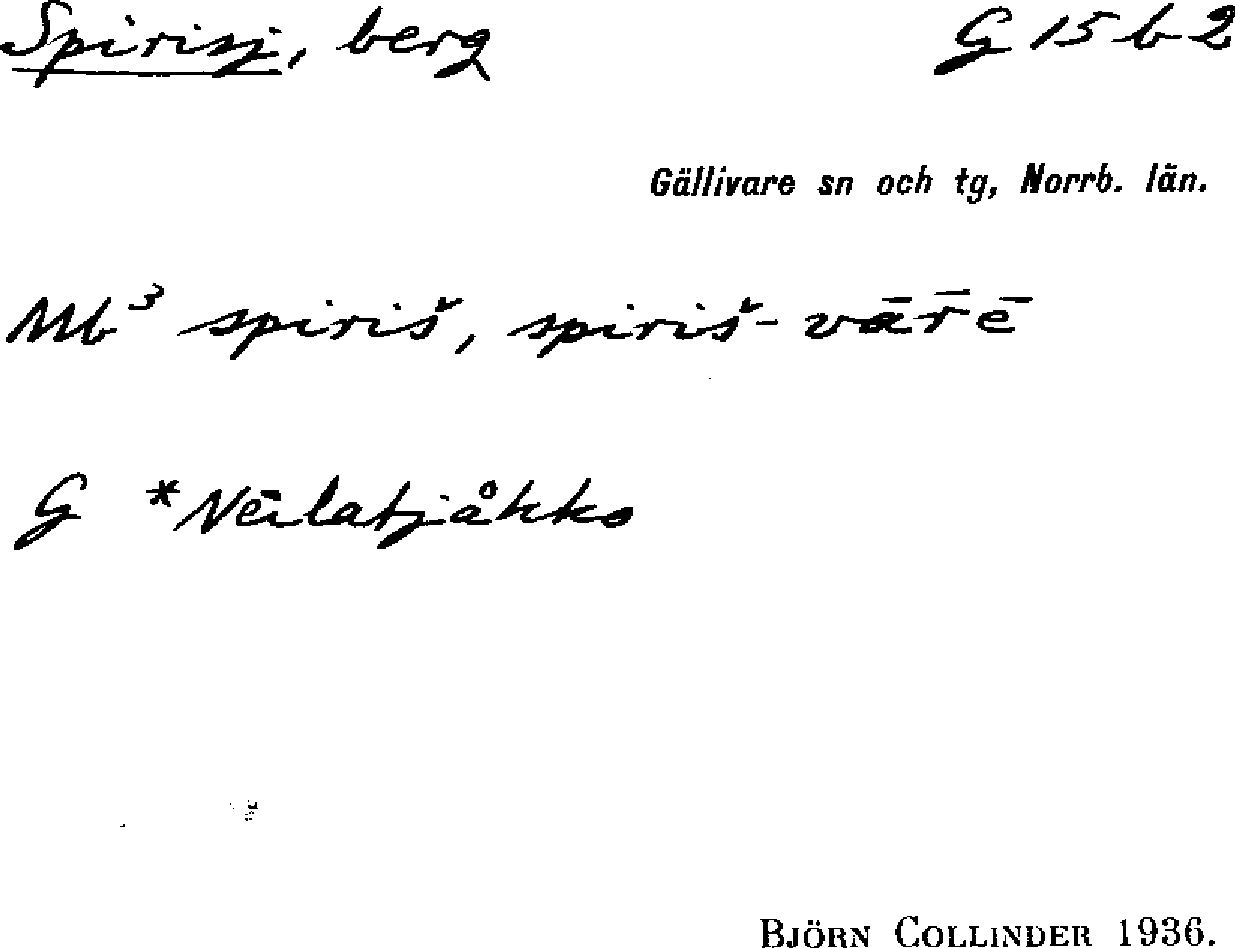 Spirisj, berg G 15 b 2
Gällivare sn och tg, Norrb. län.
Mb³ spiriš, spiriš-vār̄ē
G *Nēilatjåkko
BJÖRN COLLINDER 1936.